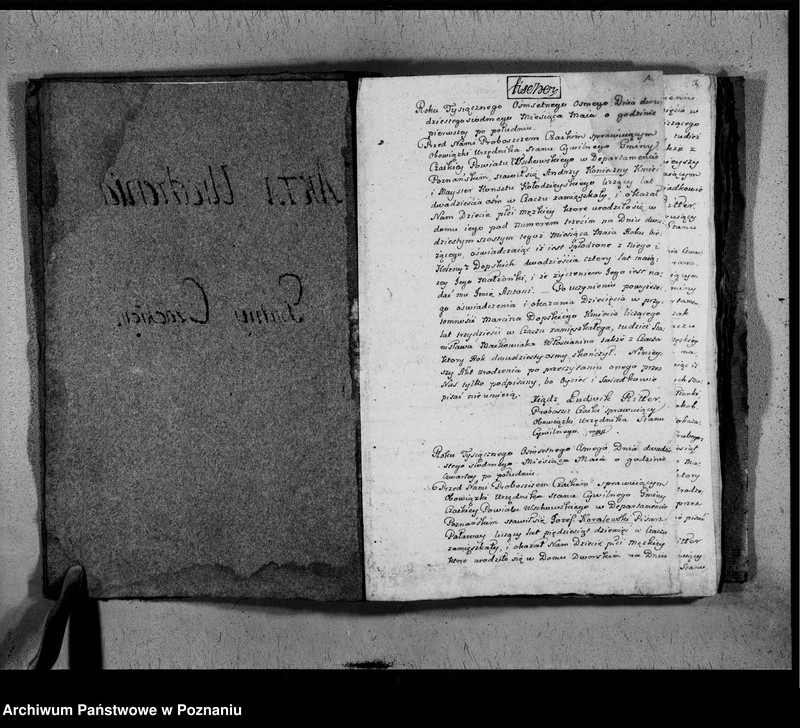 Akta Urodzenia
Gminy Czackiey
tiseHer
Roku Tysiącznego Osmsetnego Osmego Dnia dwu
dziestego siodmego Miesiąca Maia o godzinie
pierwszey po południu.
Przed Nami Proboszczem Czackim sprawuiącym
Obowiązki Urzędnika Stanu Cywilnego Gminy
Czackiey Powiatu Wschowskiego w Departamencie
Poznańskim, stawił się Andrzy Konieczny Kmieć
Mayster Konsztu Kołodzieyskiego liczący lat
dwadzieścia osm w Czaczu zamieszkały, i okazał
Nam Dziecie płci męzkiey ktore urodziło się w
domu iego pod numerem trzecim na Dniu dwu
dziestym szostym tegoż Miesiąca Maia Roku bie
żącego, oświadczaiąc iż iest spłodzone z Niego i
Heleny z Dopskich dwadzieścia cztery lat maią
cey Jego małżonki, i że życzeniem Jego iest na
dać mu Imie Antoni. Po uczynieniu powyższe
go oświadczenia i okazania Dziecięcia w przy
tomności Marcina Dopskiego Kmiecia liczącego
lat trzydzieści w Czaczu zamieszkałego, tudzież Sta
nisława Maćkowiaka Włościanina także z Czacza
ktory Rok dwudziesty osmy skończył. Niniey
szy Akt Urodzenia po przeczytaniu onego przez
Nas tylko podpisany, bo Oyciec i Świadkowie
pisać nie umieią.
Xiądz Ludwik Ritter
Proboszcz Czacki sprawuiący
Obowiązki Urzędnika Stanu
Cywilnego mpp
Roku Tysiącznego Osmsetnego Osmego Dnia dwudzie
stego siodmego Miesiąca Maia o godzinie
czwartey po południu.
Przed Nami Proboszczem Czackim sprawuiącym
Obowiązki Urzędnika Stanu Cywilnego Gminy
Czackiey Powiatu Wschowskiego w Departamencie
Poznańskim stawił się Jozef Koralewski Pisarz
liczący lat piędziesiąt dziewięć w Czaczu
zamieszkały, i okazał Nam Dziecie płci męzkiey
ktore urodziło się w Domu Dworskim na Dniu
Archiwum Państwowe w Poznaniu